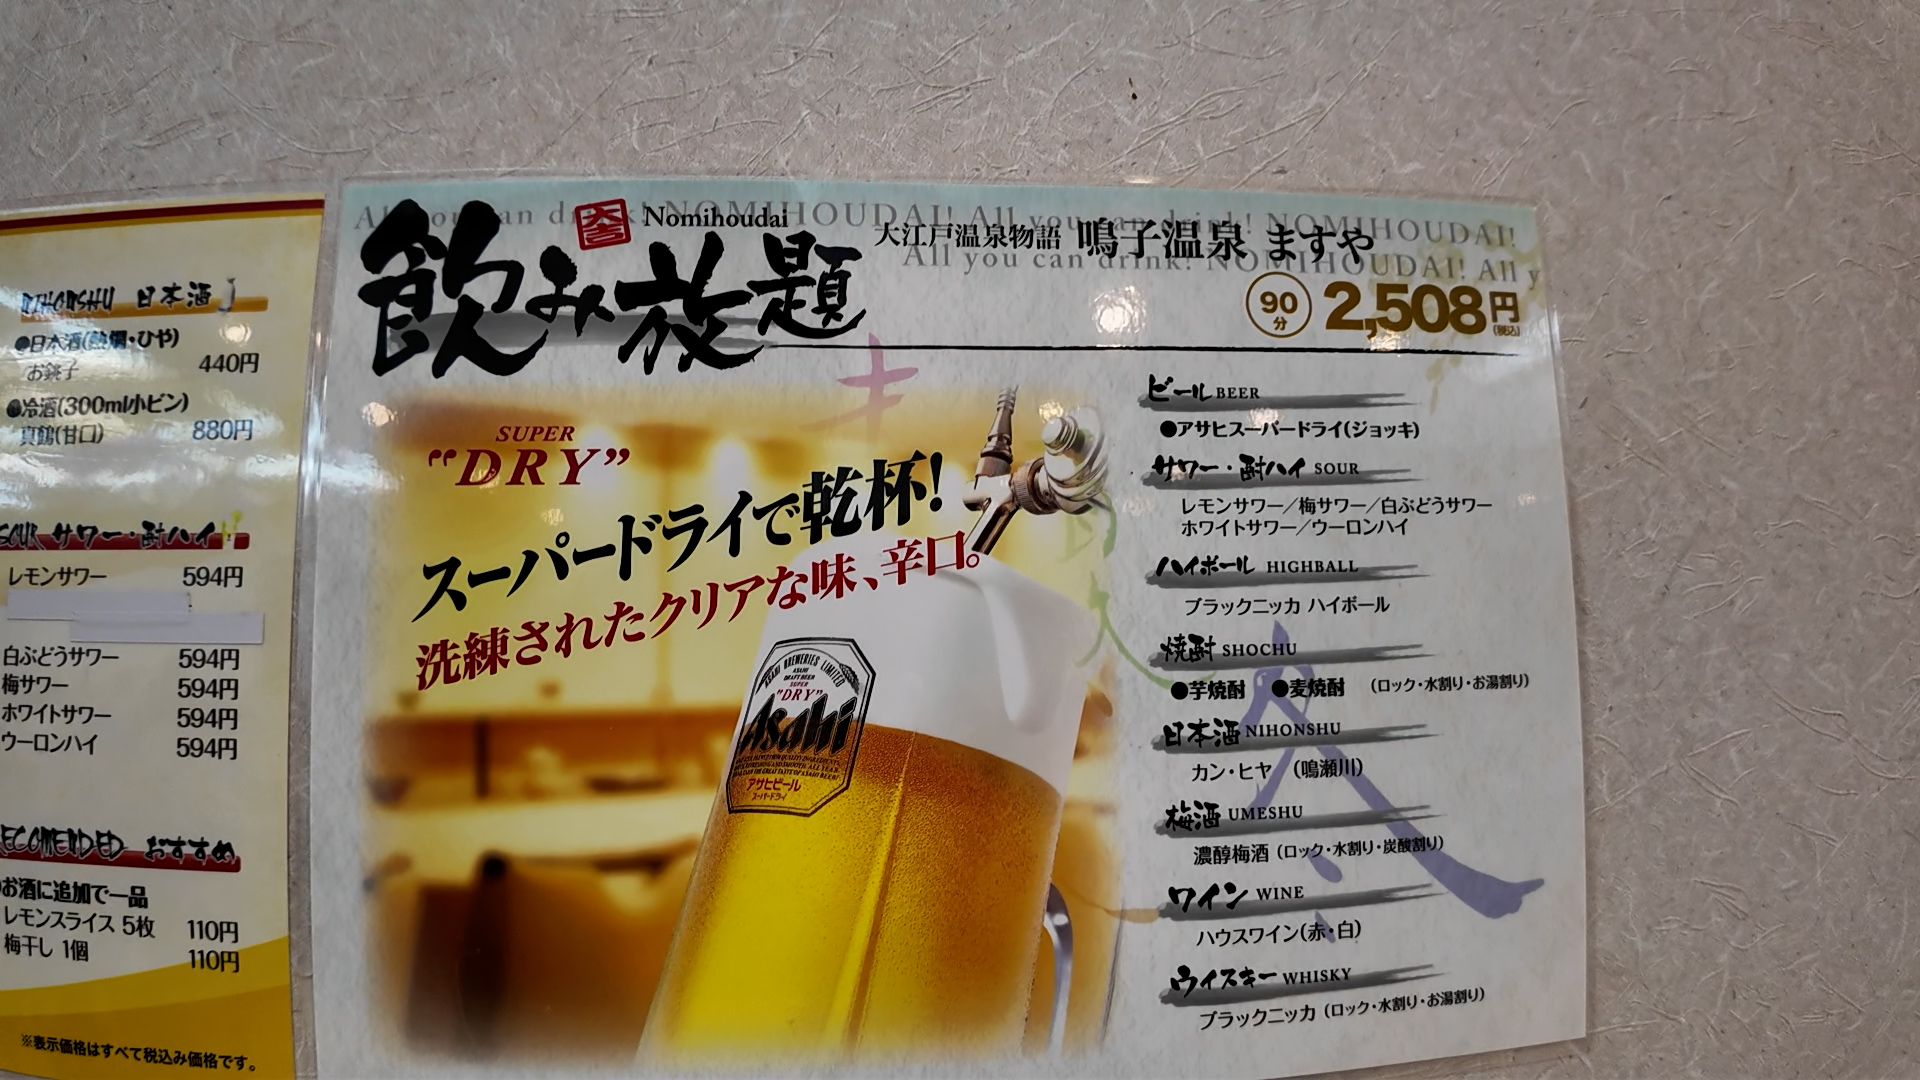 NIHONSHU 日本酒
●日本酒(熱燗・ひや)
お銚子 440円
●冷酒(300ml小ビン)
真鶴(甘口) 880円
SOUR サワー・酎ハイ
レモンサワー 594円
白ぶどうサワー 594円
梅サワー 594円
ホワイトサワー 594円
ウーロンハイ 594円
RECOMENDED おすすめ
お酒に追加で一品
レモンスライス 5枚 110円
梅干し 1個 110円
※表示価格はすべて税込み価格です。
All you can drink! NOMIHOUDAI! All you can drink! NOMIHOUDAI!
All you can drink! NOMIHOUDAI! All y
飲み放題
大吉
Nomihoudai
大江戸温泉物語 鳴子温泉 ますや
90分 2,508円(税込)
SUPER
"DRY"
スーパードライで乾杯!
洗練されたクリアな味、辛口。
ASAHI BREWERIES LIMITED
ASAHI
DRAFT BEER
SUPER
"DRY"
Asahi
アサヒビール
スーパードライ
ビール BEER
●アサヒスーパードライ(ジョッキ)
サワー・酎ハイ SOUR
レモンサワー/梅サワー/白ぶどうサワー
ホワイトサワー/ウーロンハイ
ハイボール HIGHBALL
ブラックニッカ ハイボール
焼酎 SHOCHU
●芋焼酎 ●麦焼酎 (ロック・水割り・お湯割り)
日本酒 NIHONSHU
カン・ヒヤ (鳴瀬川)
梅酒 UMESHU
濃醇梅酒 (ロック・水割り・炭酸割り)
ワイン WINE
ハウスワイン(赤・白)
ウイスキー WHISKY
ブラックニッカ (ロック・水割り・お湯割り)